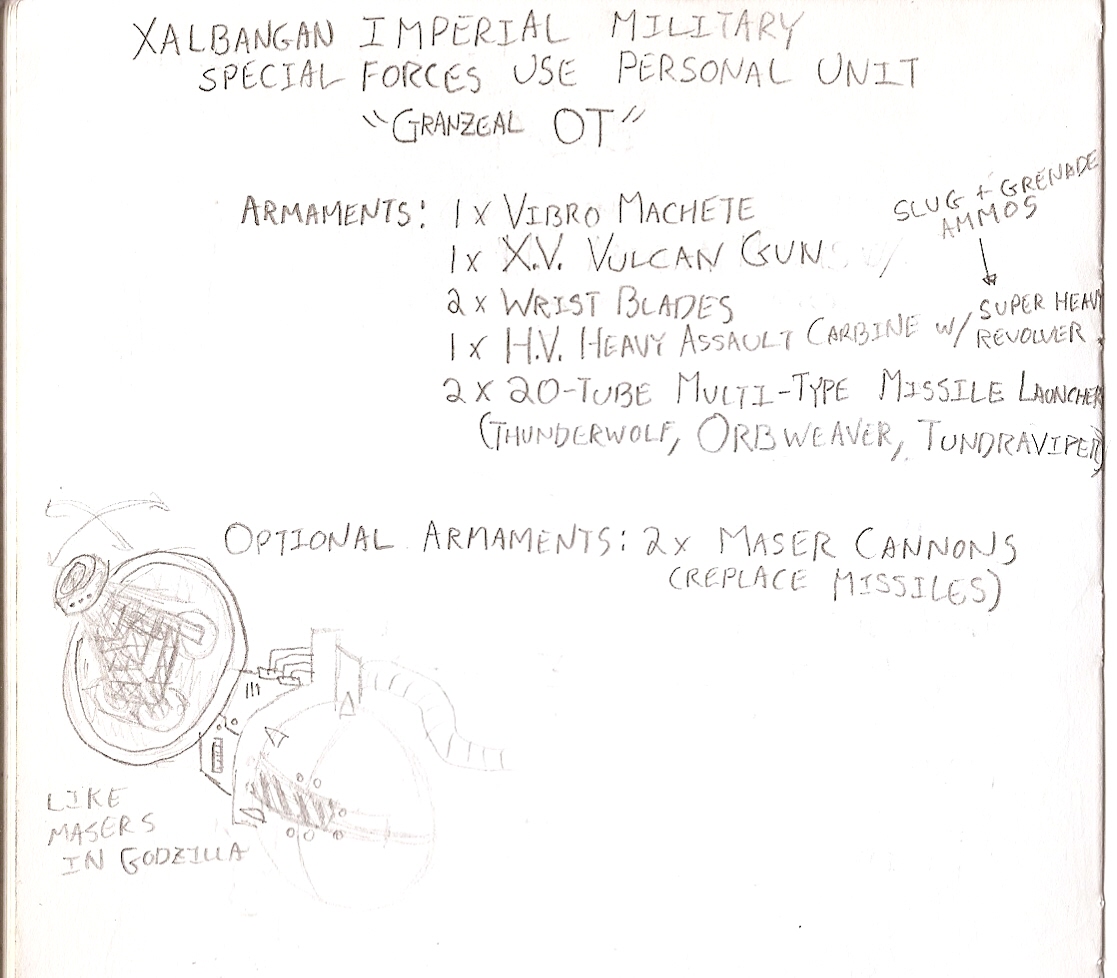 XALBANGAN IMPERIAL MILITARY
SPECIAL FORCES USE PERSONAL UNIT
"GRANZEAL OT"
SLUG + GRENADE
AMMOS
ARMAMENTS: 1x VIBRO MACHETE
1x X.V. VULCAN GUN w/
2x WRIST BLADES
1x H.V. HEAVY ASSAULT CARBINE w/ SUPER HEAVY
REVOLVER
2x 20-TUBE MULTI-TYPE MISSILE LAUNCHER
(THUNDERWOLF, ORBWEAVER, TUNDRAVIPER)
OPTIONAL ARMAMENTS: 2x MASER CANNONS
(REPLACE MISSILES)
LIKE
MASERS
IN GODZILLA